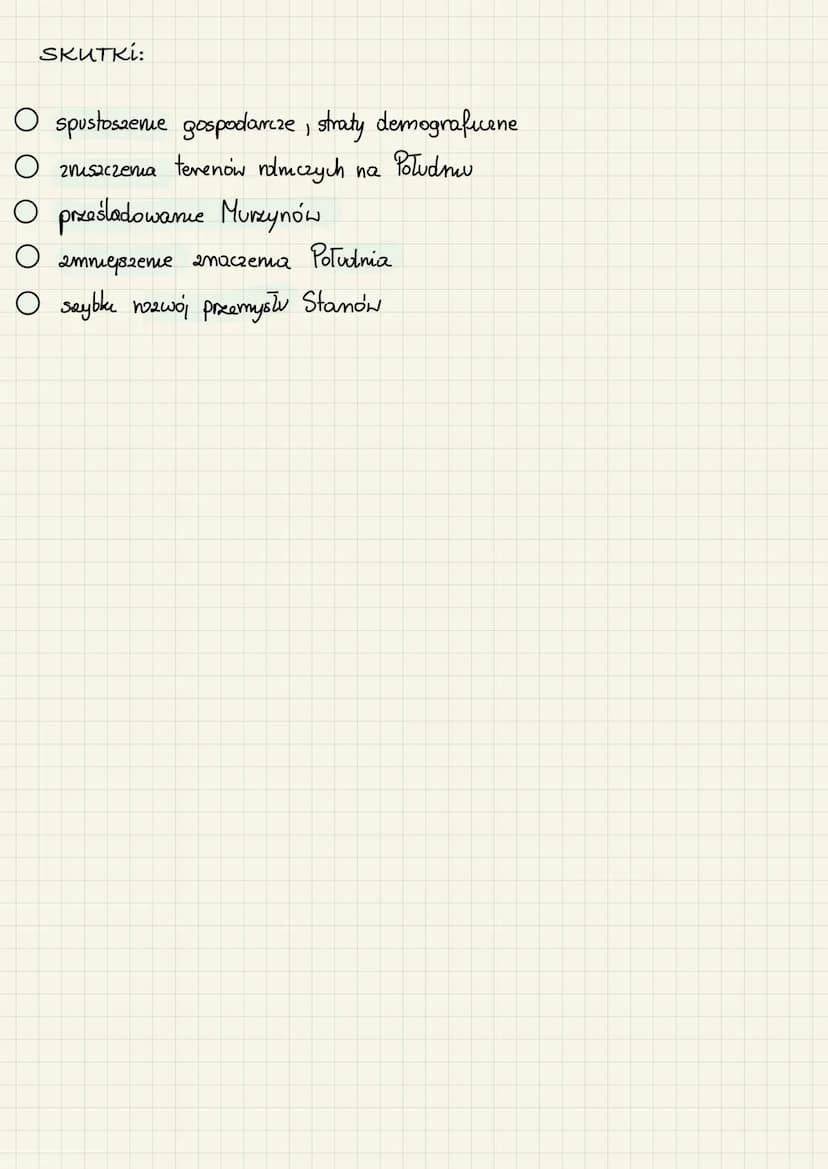 SKUTKI:
spustoszenie gospodarcze, straty demograficzne
zniszczenia terenów rolniczych na Południu
prześladowanie Murzynów
zmniejszenie znaczenia Południa
szybki rozwój przemysłu Stanów